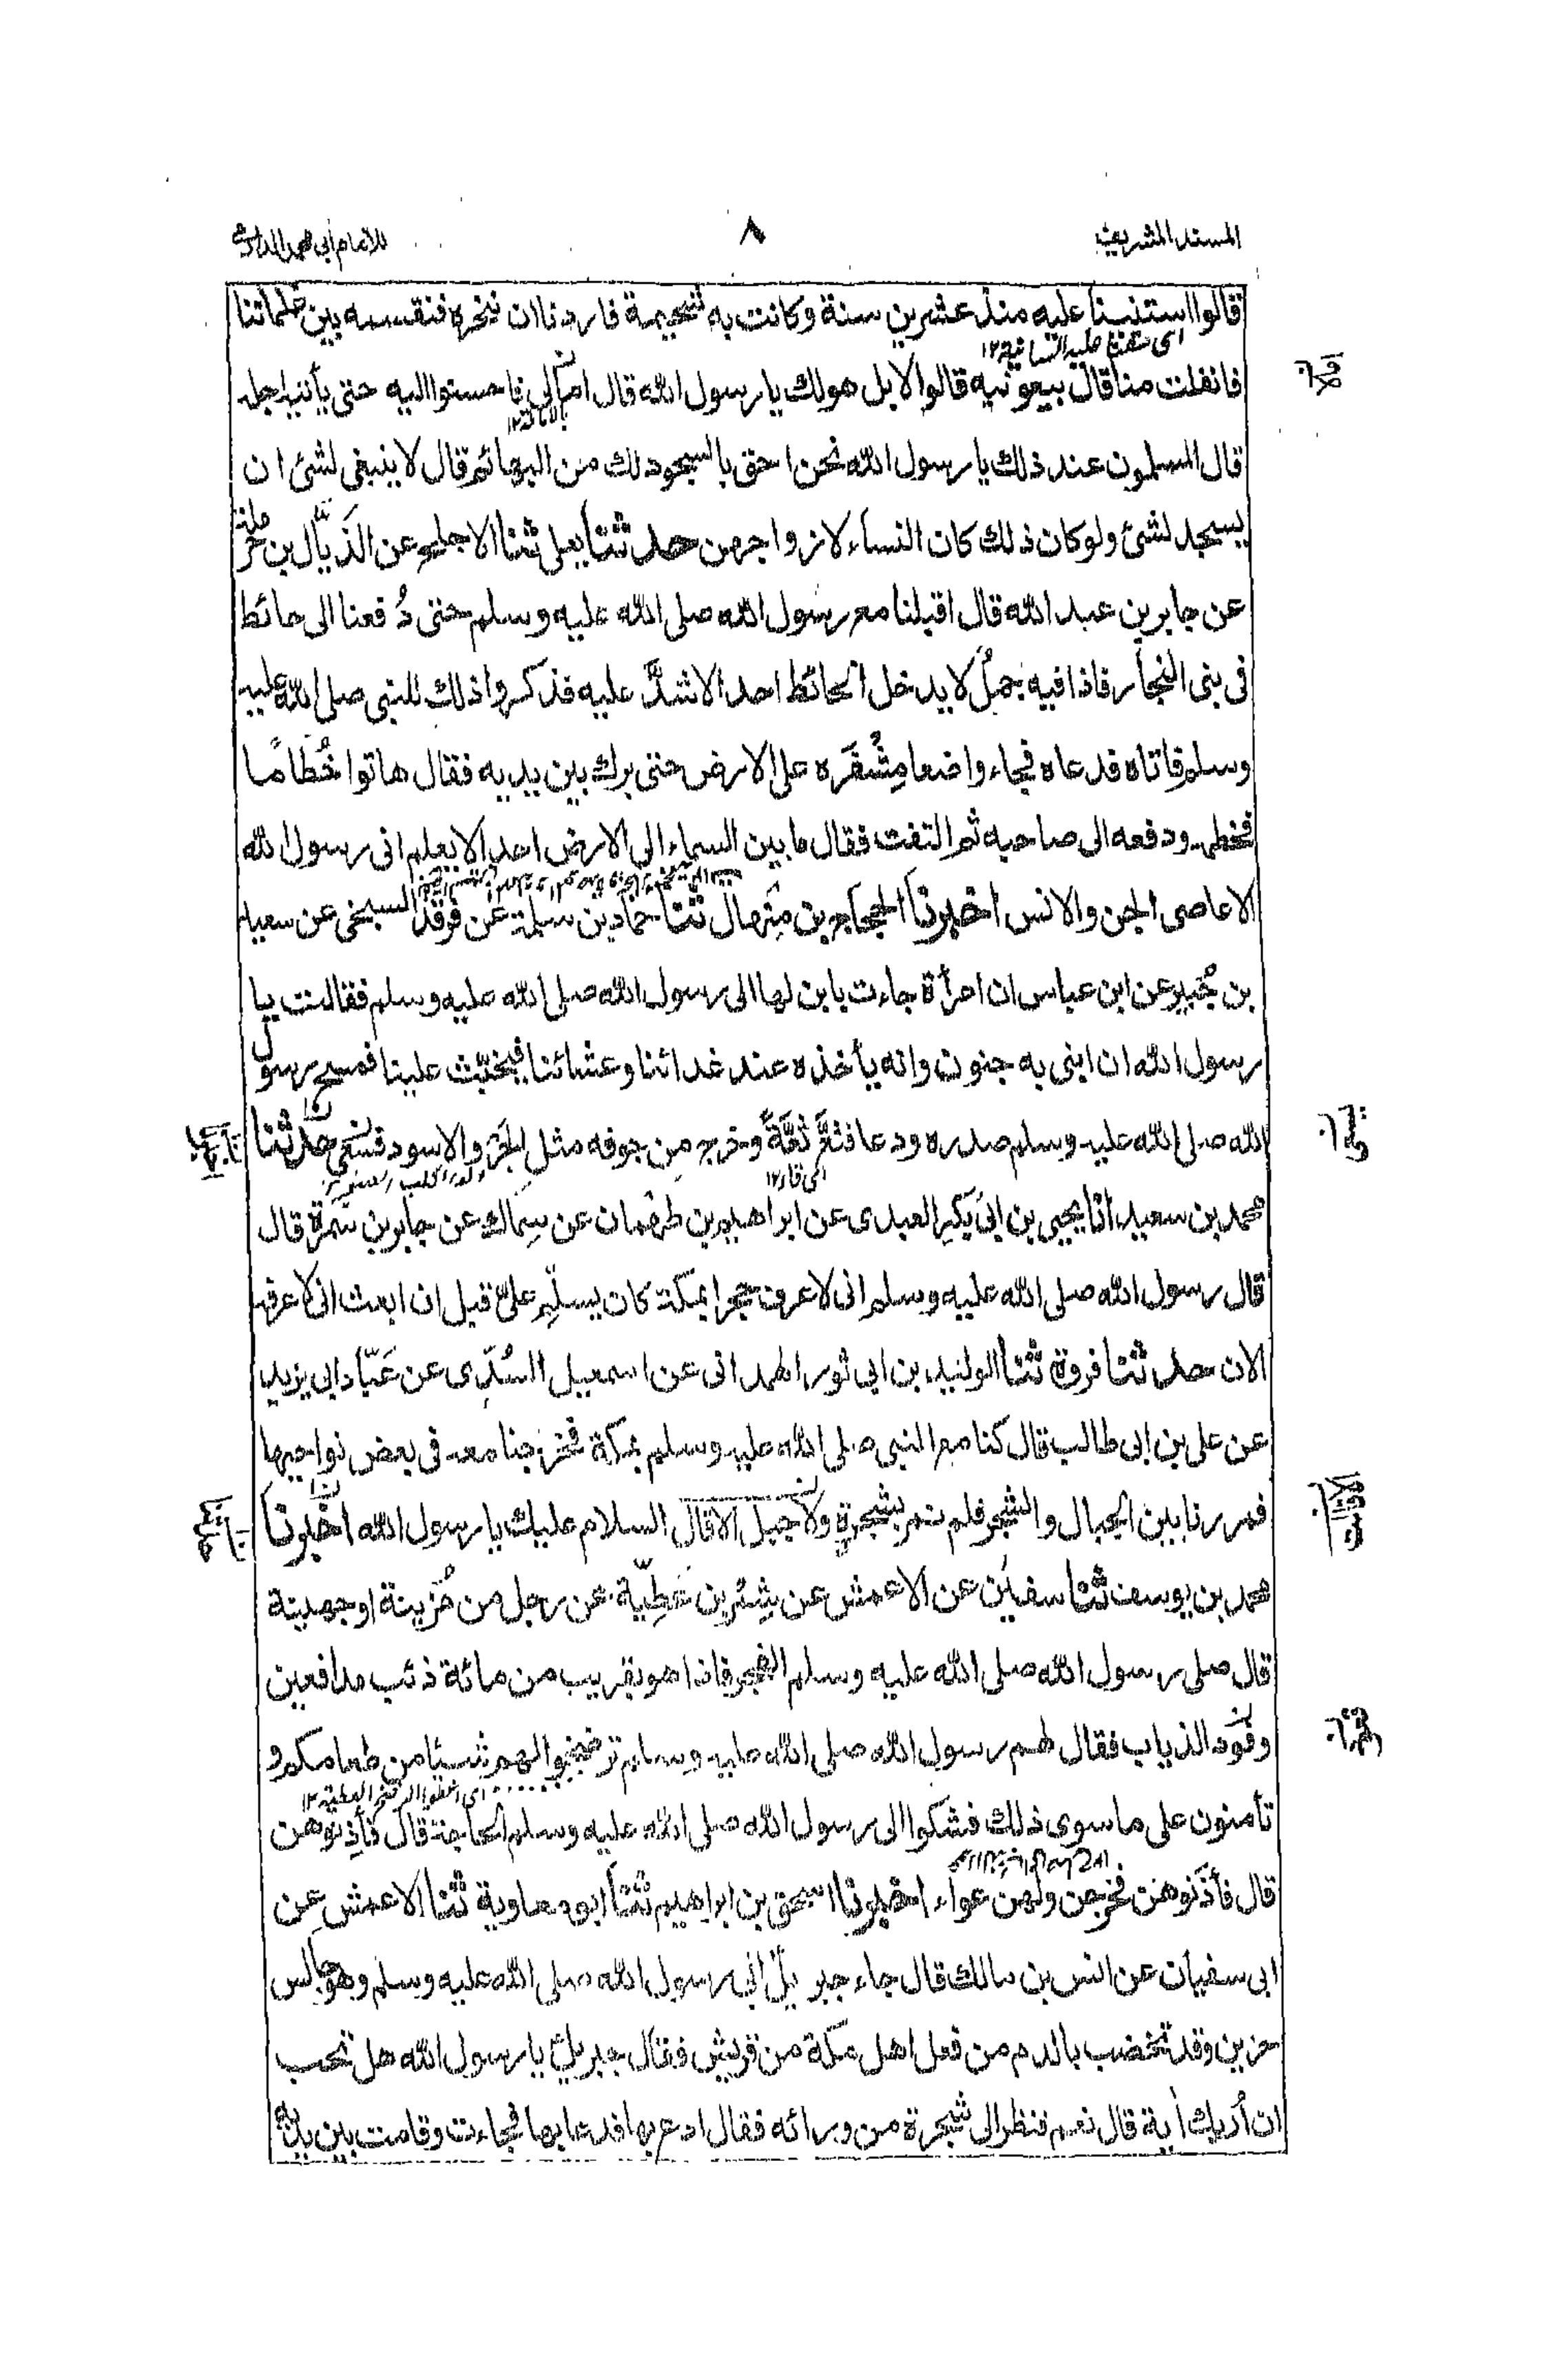 المسند الشريف ٨ للامام ابى محمد الدارمى
قالوا استنينا عليه منذ عشرين سنة وكانت به شحيمة فاردنا ان ننحره فنقسمه بين غلماننا
فانفلت منا قال بيعونيه قالوا لا بل هو لك يا رسول الله قال اما لى فاحسنوا اليه حتى يأتيه اجله
قال المسلمون عند ذلك يا رسول الله نحن احق بالسجود لك من البهائم قال لا ينبغى لشئ ان
يسجد لشئ ولو كان ذلك كان النساء لازواجهن حدثنا يعلى ثنا الاجلح عن الذيّال بن حرملة
عن جابر بن عبد الله قال اقبلنا مع رسول الله صلى الله عليه وسلم حتى دُفعنا الى حائط
فى بنى النجار فاذا فيه جملٌ لا يدخل الحائط احد الا شدَّ عليه فذكروا ذلك للنبى صلى الله عليه
وسلم فاتاه فدعاه فجاء واضعا مِشْفَره على الارض حتى برك بين يديه فقال هاتوا خُطامًا
فخطمه ودفعه الى صاحبه ثم التفت فقال ما بين السماء الى الارض احد الا يعلم انى رسول الله
الا عاصى الجن والانس اخبرنا الحجاج بن مِنهال ثنا حماد بن سلمة عن فرقد السبخى عن سعيد
بن جُبير عن ابن عباس ان امرأة جاءت بابن لها الى رسول الله صلى الله عليه وسلم فقالت يا
رسول الله ان ابنى به جنون وانه يأخذه عند غدائنا وعشائنا فيخبّث علينا فمسح رسول
الله صلى الله عليه وسلم صدره ودعا فثعَّ ثعَّةً وخرج من جوفه مثل الجرو الاسود فسعى حدثنا
اى قاء ١٢
محمد بن سعيد انا يحيى بن ابى بكير العبدى عن ابراهيم بن طهمان عن سِماك عن جابر بن سَمُرة قال
قال رسول الله صلى الله عليه وسلم انى لاعرف حجرا بمكة كان يسلّم علىّ قبل ان ابعث انى لاعرفه
الان حدثنا فروة ثنا الوليد بن ابى ثور الهمدانى عن اسمعيل السُدّى عن عَبّاد ابى يزيد
عن على بن ابى طالب قال كنا مع النبى صلى الله عليه وسلم بمكة فخرجنا معه فى بعض نواحيها
فمررنا بين الجبال والشجر فلم نمر بشجرةٍ ولا جبل الا قال السلام عليك يا رسول الله اخبرنا
محمد بن يوسف ثنا سفيٰن عن الاعمش عن شِمْر بن عَطِيّة عن رجل من مُزينة او جهينة
قال صلى رسول الله صلى الله عليه وسلم الفجر فاذا هو بقريب من مائة ذئب قد اقعين
وفُود الذياب فقال لهم رسول الله صلى الله عليه وسلم ترضخوا لهم شيئا من طعامكم و
تأمنون على ما سوى ذلك فشكوا الى رسول الله صلى الله عليه وسلم الحاجة قال فأذنوهن
قال فأذَنوهن فخرجن ولهن عواء اخبرنا اسحق بن ابراهيم ثنا ابو معاوية ثنا الاعمش عن
ابى سفيان عن انس بن مالك قال جاء جبريل الى رسول الله صلى الله عليه وسلم وهو جالس
حزين وقد تخضب بالدم من فعل اهل مكة من قريش فقال جبريل يا رسول الله هل تحب
ان اُريك اٰية قال نعم فنظر الى شجرة من ورائه فقال ادع بها فدعا بها فجاءت وقامت بين يديه